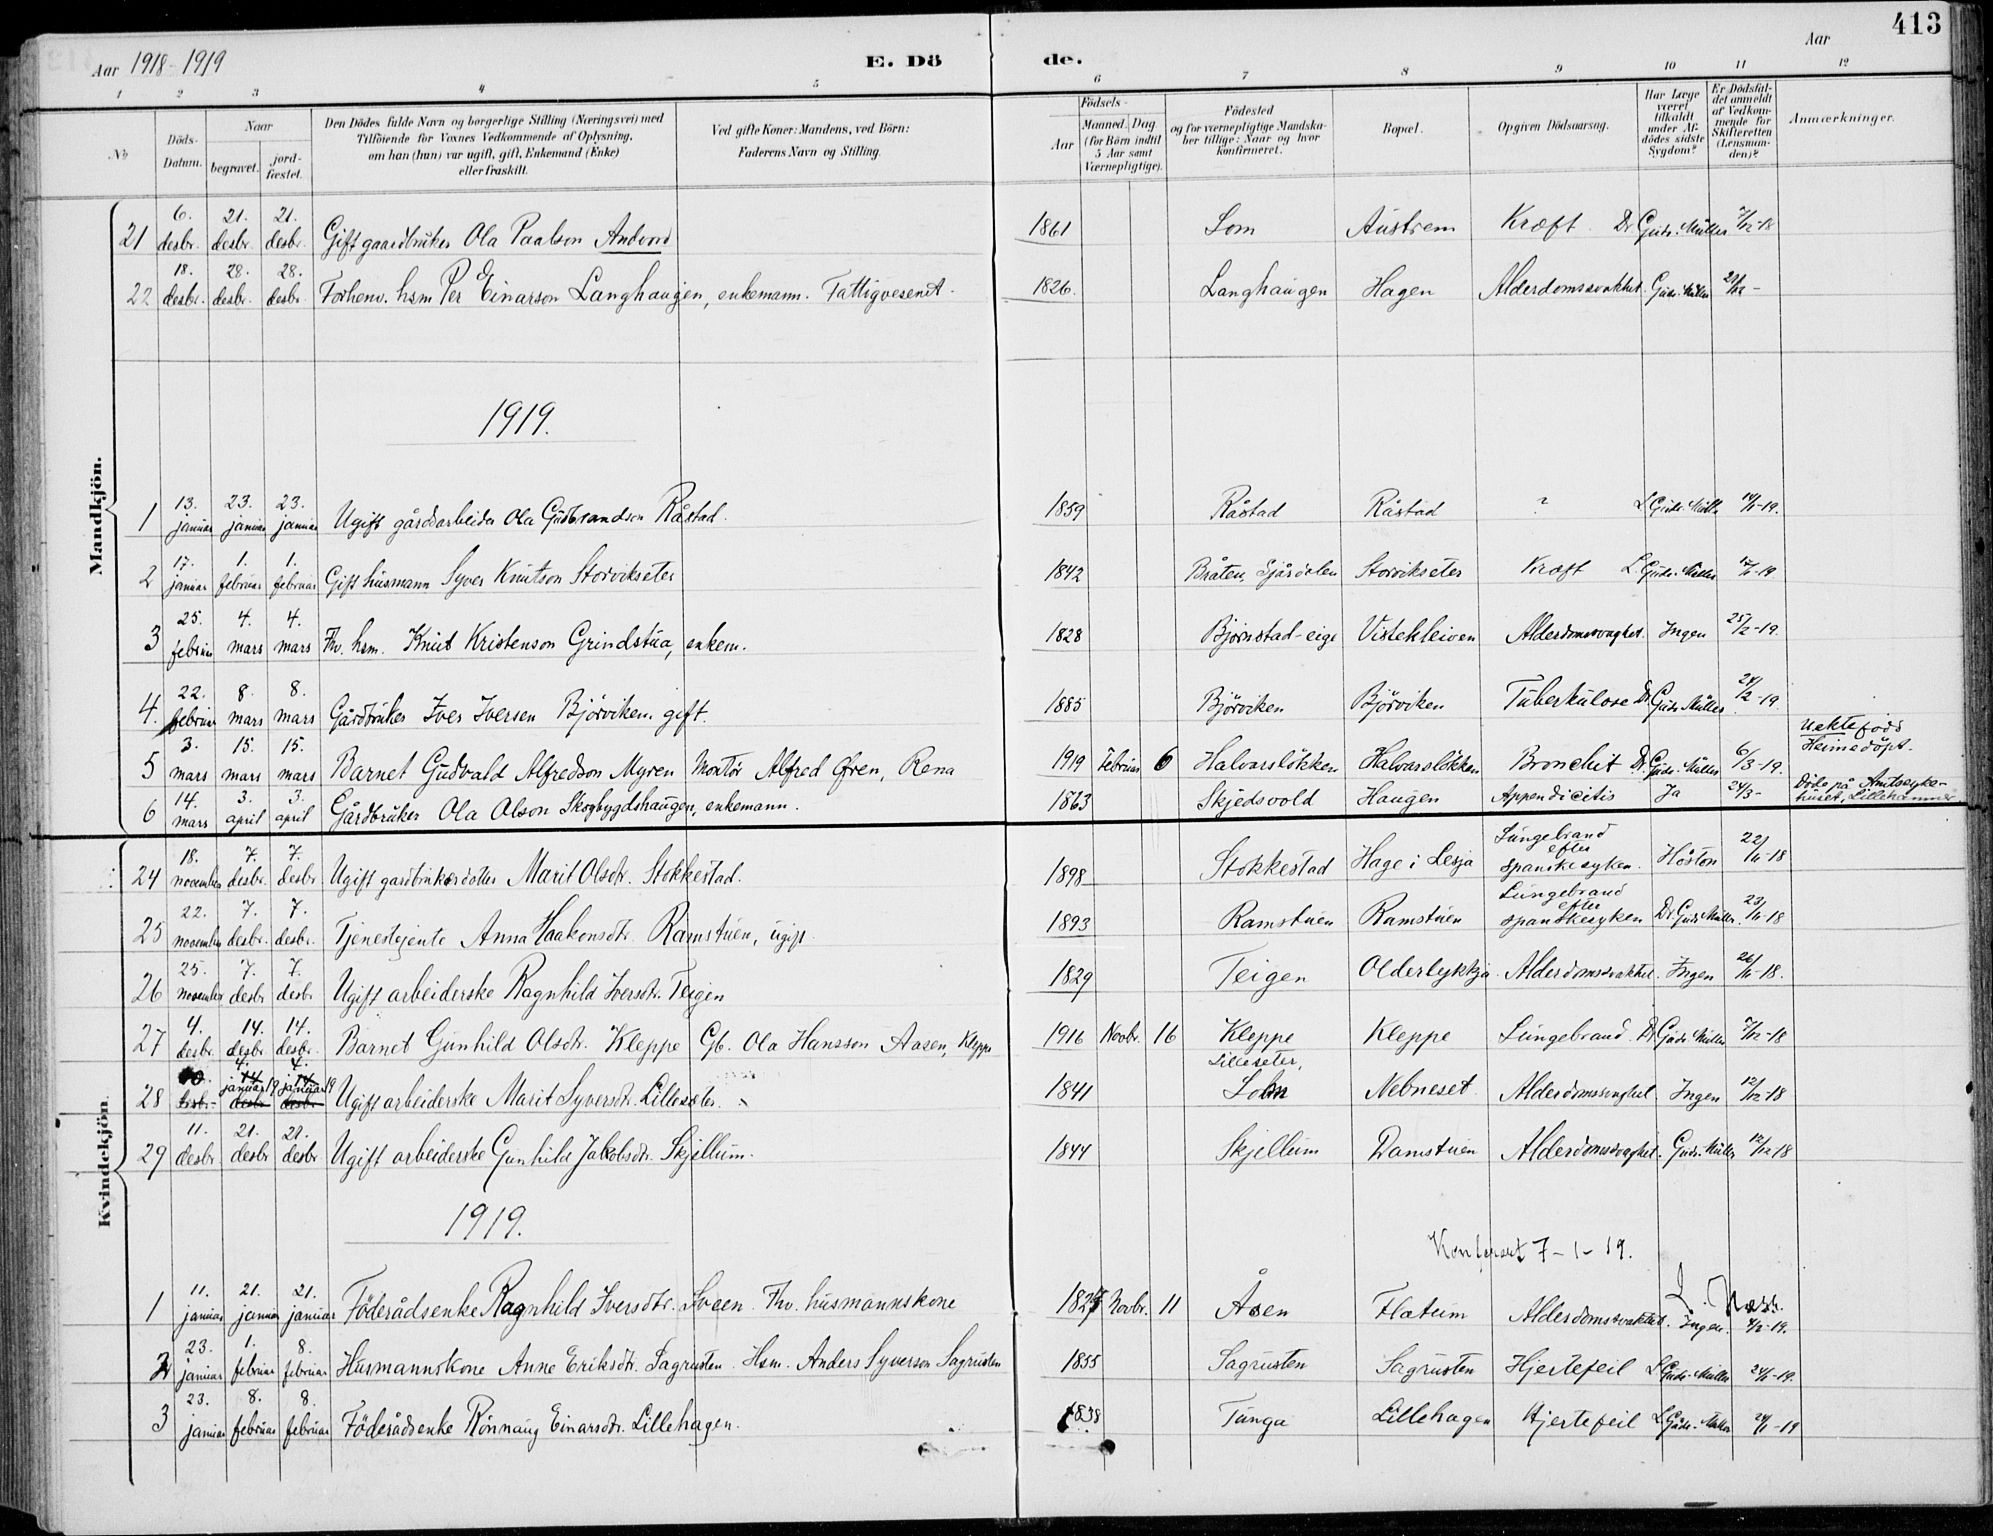 413
Aar 1918-1919 E. Dö de. Aar
1 2 3 4 5 6 7 8 9 10 11 12
No Döds-Datum. Naar begravet. jord-fæstet. Den Dödes fulde Navn og borgerlige Stilling (Næringsvei) med Tilföiende for Voxnes Vedkommende af Oplysning, om han (hun) var ugift, gift, Enkemand (Enke) eller fraskilt. Ved gifte Koner: Mandens, ved Börn: Faderens Navn og Stilling. Födsels- Aar Maaned. Dag (for Börn indtil 5 Aar samt Værnepligtige). Födested og for værnepligtige Mandskaber tillige: Naar og hvor konfirmeret. Bopæl. Opgiven Dödsaarsag. Har Læge været tilkaldt under Afdödes sidste Sygdom? Er Dödsfaldet anmeldt af Vedkommende for Skifteretten (Lensmanden)? Anmærkninger.
Mandkjön.
21 6. desbr. 21. desbr. 21. desbr. Gift gaardbruker Ola Paalson Andvord 1861 Lom Austrem Kræft Dr Gudr. Müller 7/12-18
22 18. desbr. 28. desbr. 28. desbr. Forhenv. hsm Per Einarson Langhaugen, enkemann. Fattigvesenet. 1826. Langhaugen Hagen Alderdomssvakhet. Gudr. Müller
1919.
1 13. januar 23. januar 23. januar Ugift gårdsarbeider Ola Gudbrandson Råstad. 1859 Råstad Råstad ? L Gudr. Müller 14/1-19.
2 17. januar 1. februar 1. februar Gift husmann Syver Knutson Storvikseter 1842 Bråten, Sjårdalen Storvikseter Kræft L Gudr. Müller
3 25. februar 4. mars 4. mars Fhv. hsm. Knut Kristenson Grindstua, enkem. 1828 Björnstad-eige Vistekleiven Alderdomssvaghet. Ingen 25/2-19.
4. 22. februar 8. mars 8. mars Gårdbruker Iver Iversen Björviken. gift. 1885 Björviken Björviken Tuberkulose Dr. Gudr Müller 24/2-19.
5 3. mars 15. mars 15. mars Barnet Gudvald Alfredson Myren Montör Alfred Øren, Rena 1919 Februar 6 Halvarslökken Halvarslökken Bronchit Dr. Gudr. Müller 6/3-19. Uektefödt Heimedöpt.
6 14. mars 3. april 3. april Gårdbruker Ola Olson Skogbygdshaugen, enkemann. 1863 Skjedsvold Haugen Appendicitis Ja 24/3- Döde på Amtssyke-huset, Lillehammer
Kvindekjön.
24 18. november 7. desbr. 7. desbr. Ugift gardbrukerdotter Marit Olsdtr. Stokkestad. 1898 Stokkestad Hage i Lesja Lungebrand efter spanskesyken. Höston 22/11-18
25 22. november 7. desbr. 7. desbr. Tjenestejente Anna Haakonsdtr. Ramstuen, ugift. 1893 Ramstuen Ramstuen Lungebrand efter spanskesyken Dr. Gudr. Müller. 23/11-18
26 25. november 7. desbr 7. desbr Ugift arbeiderske Ragnhild Iversdtr. Teigen 1829 Teigen Olderlykkja Alderdomssvakhet. Ingen 26/11-18.
27 4. desbr. 14. desbr 14. desbr. Barnet Gunhild Olsdtr. Kleppe Gb. Ola Hansson Aasen, Kleppe 1916 Novbr. 16 Kleppe Kleppe Lungebrand. Dr. Gudr Müller 7/12-18
28 10. desbr. 14 desbr 4. januar 19 14 desbr 4. januar 19 Ugift arbeiderske Marit Syversdtr. Lilleseter. 1841 Lilleseter, Lom Nebneset Alderdomssvaghet. Ingen 12/12-18
29 11. desbr 21. desbr 21. desbr Ugift arbeiderske Gunhild Jakobsdtr. Skjellum. 1844 Skjellum Ramstuen Alderdomssvaghet. Gudr. Müller 12/12-18
1919.
Konferert 7-1-19.
1 11. januar 21. januar 21. januar Föderådsenke Ragnhild Iversdtr. Sveen. Fhv. husmannskone Novbr. 11 Åsen Flatum Alderdomssvakhet. Ingen.
2 23. januar 1. februar 8. februar Husmannskone Anne Eriksdtr. Sagrusten. Hsm. Anders Syverson Sagrusten 1855 Sagrusten Sagrusten Hjertefeil L Gudr. Müller 24/1-19.
3 23. januar 8. februar 8. februar Föderådsenke Rönnaug Einarsdtr. Lillehagen. 1838 Tunga Lillehagen Hjertefeil L Gudr. Müller 24/1-19